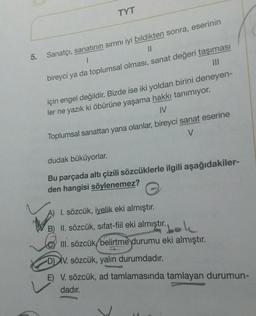 TYT
5. Sanatçı, sanatının sırrını iyi bildikten sonra, eserinin
I II
bireyci ya da toplumsal olması, sanat değeri taşıması
III
için engel değildir. Bizde ise iki yoldan birini deneyen-
ler ne yazık ki öbürüne yaşama hakkı tanımıyor.
IV
Toplumsal sanattan yana olanlar, bireyci sanat eserine
V
dudak büküyorlar.
Bu parçada altı çizili sözcüklerle ilgili aşağıdakiler-
den hangisi söylenemez?
A) I. sözcük, iyelik eki almıştır.
B) II. sözcük, sıfat-fiil eki almıştır.
C) III. sözcük, belirtme durumu eki almıştır.
D) IV. sözcük, yalın durumdadır.
E) V. sözcük, ad tamlamasında tamlayan durumun-
dadır.